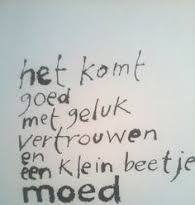 het komt
goed
met geluk
vertrouwen
en
een klein beetje
moed